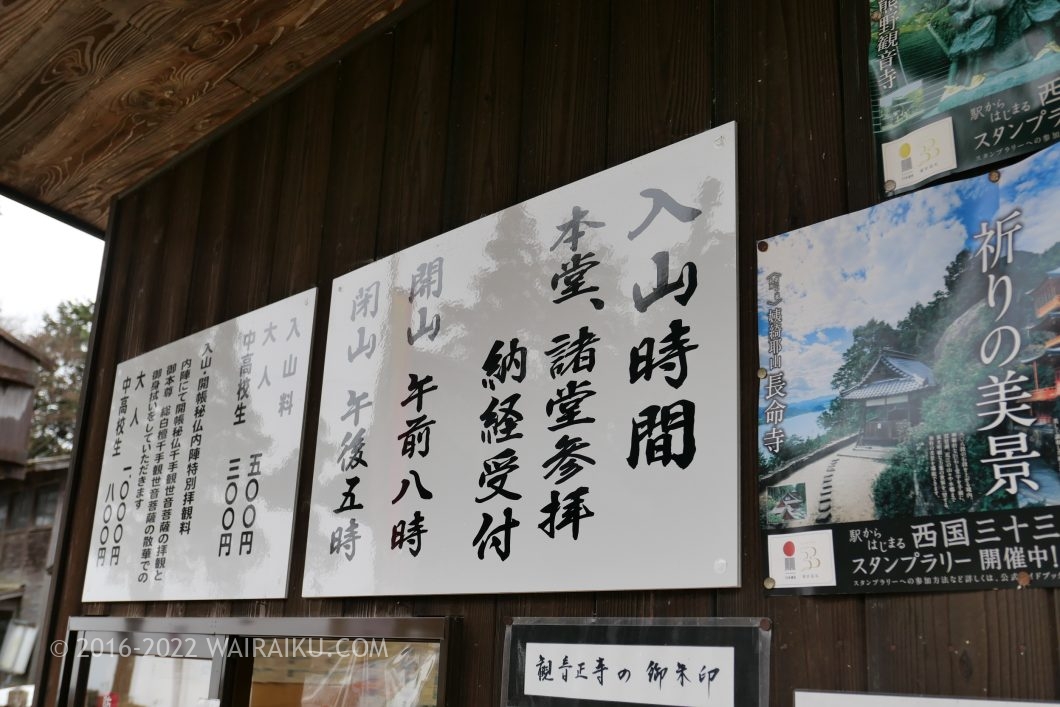 入山時間
本堂、諸堂参拝
納経受付
開山 午前八時
閉山 午後五時
入山料
大人 五〇〇円
中高校生 三〇〇円
入山・開帳秘仏内陣特別拝観料
内陣にて開帳秘仏千手観世音菩薩の拝観と
御本尊 総白檀千手観世音菩薩の散華での
御身拭いをしていただきます
大人 一〇〇〇円
中高校生 八〇〇円
熊野観音寺
駅から
はじまる
西
スタンプラリー
スタンプラリーへの参加
33
祈りの美景
姨綺耶山 長命寺
駅から
はじまる
西国三十三
スタンプラリー 開催中!
スタンプラリーへの参加方法など詳しくは、公式ガイドブ
33
観音正寺の御朱印
© 2016-2022 WAIRAIKU.COM